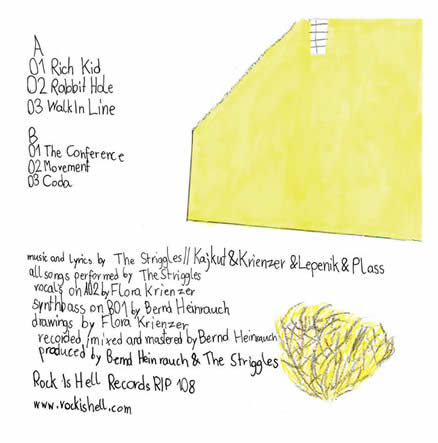 A
01 Rich Kid
02 Rabbit Hole
03 Walk In Line
B
01 The Conference
02 Movement
03 Coda
music and lyrics by The Striggles // Kajkut & Krienzer & Lepenik & Plass
all songs performed by The Striggles
vocals on A02 by Flora Krienzer
synthbass on B01 by Bernd Heinrauch
drawings by Flora Krienzer
recorded/mixed and mastered by Bernd Heinrauch
produced by Bernd Heinrauch & The Striggles
Rock Is Hell Records RIP 108
www.rockishell.com